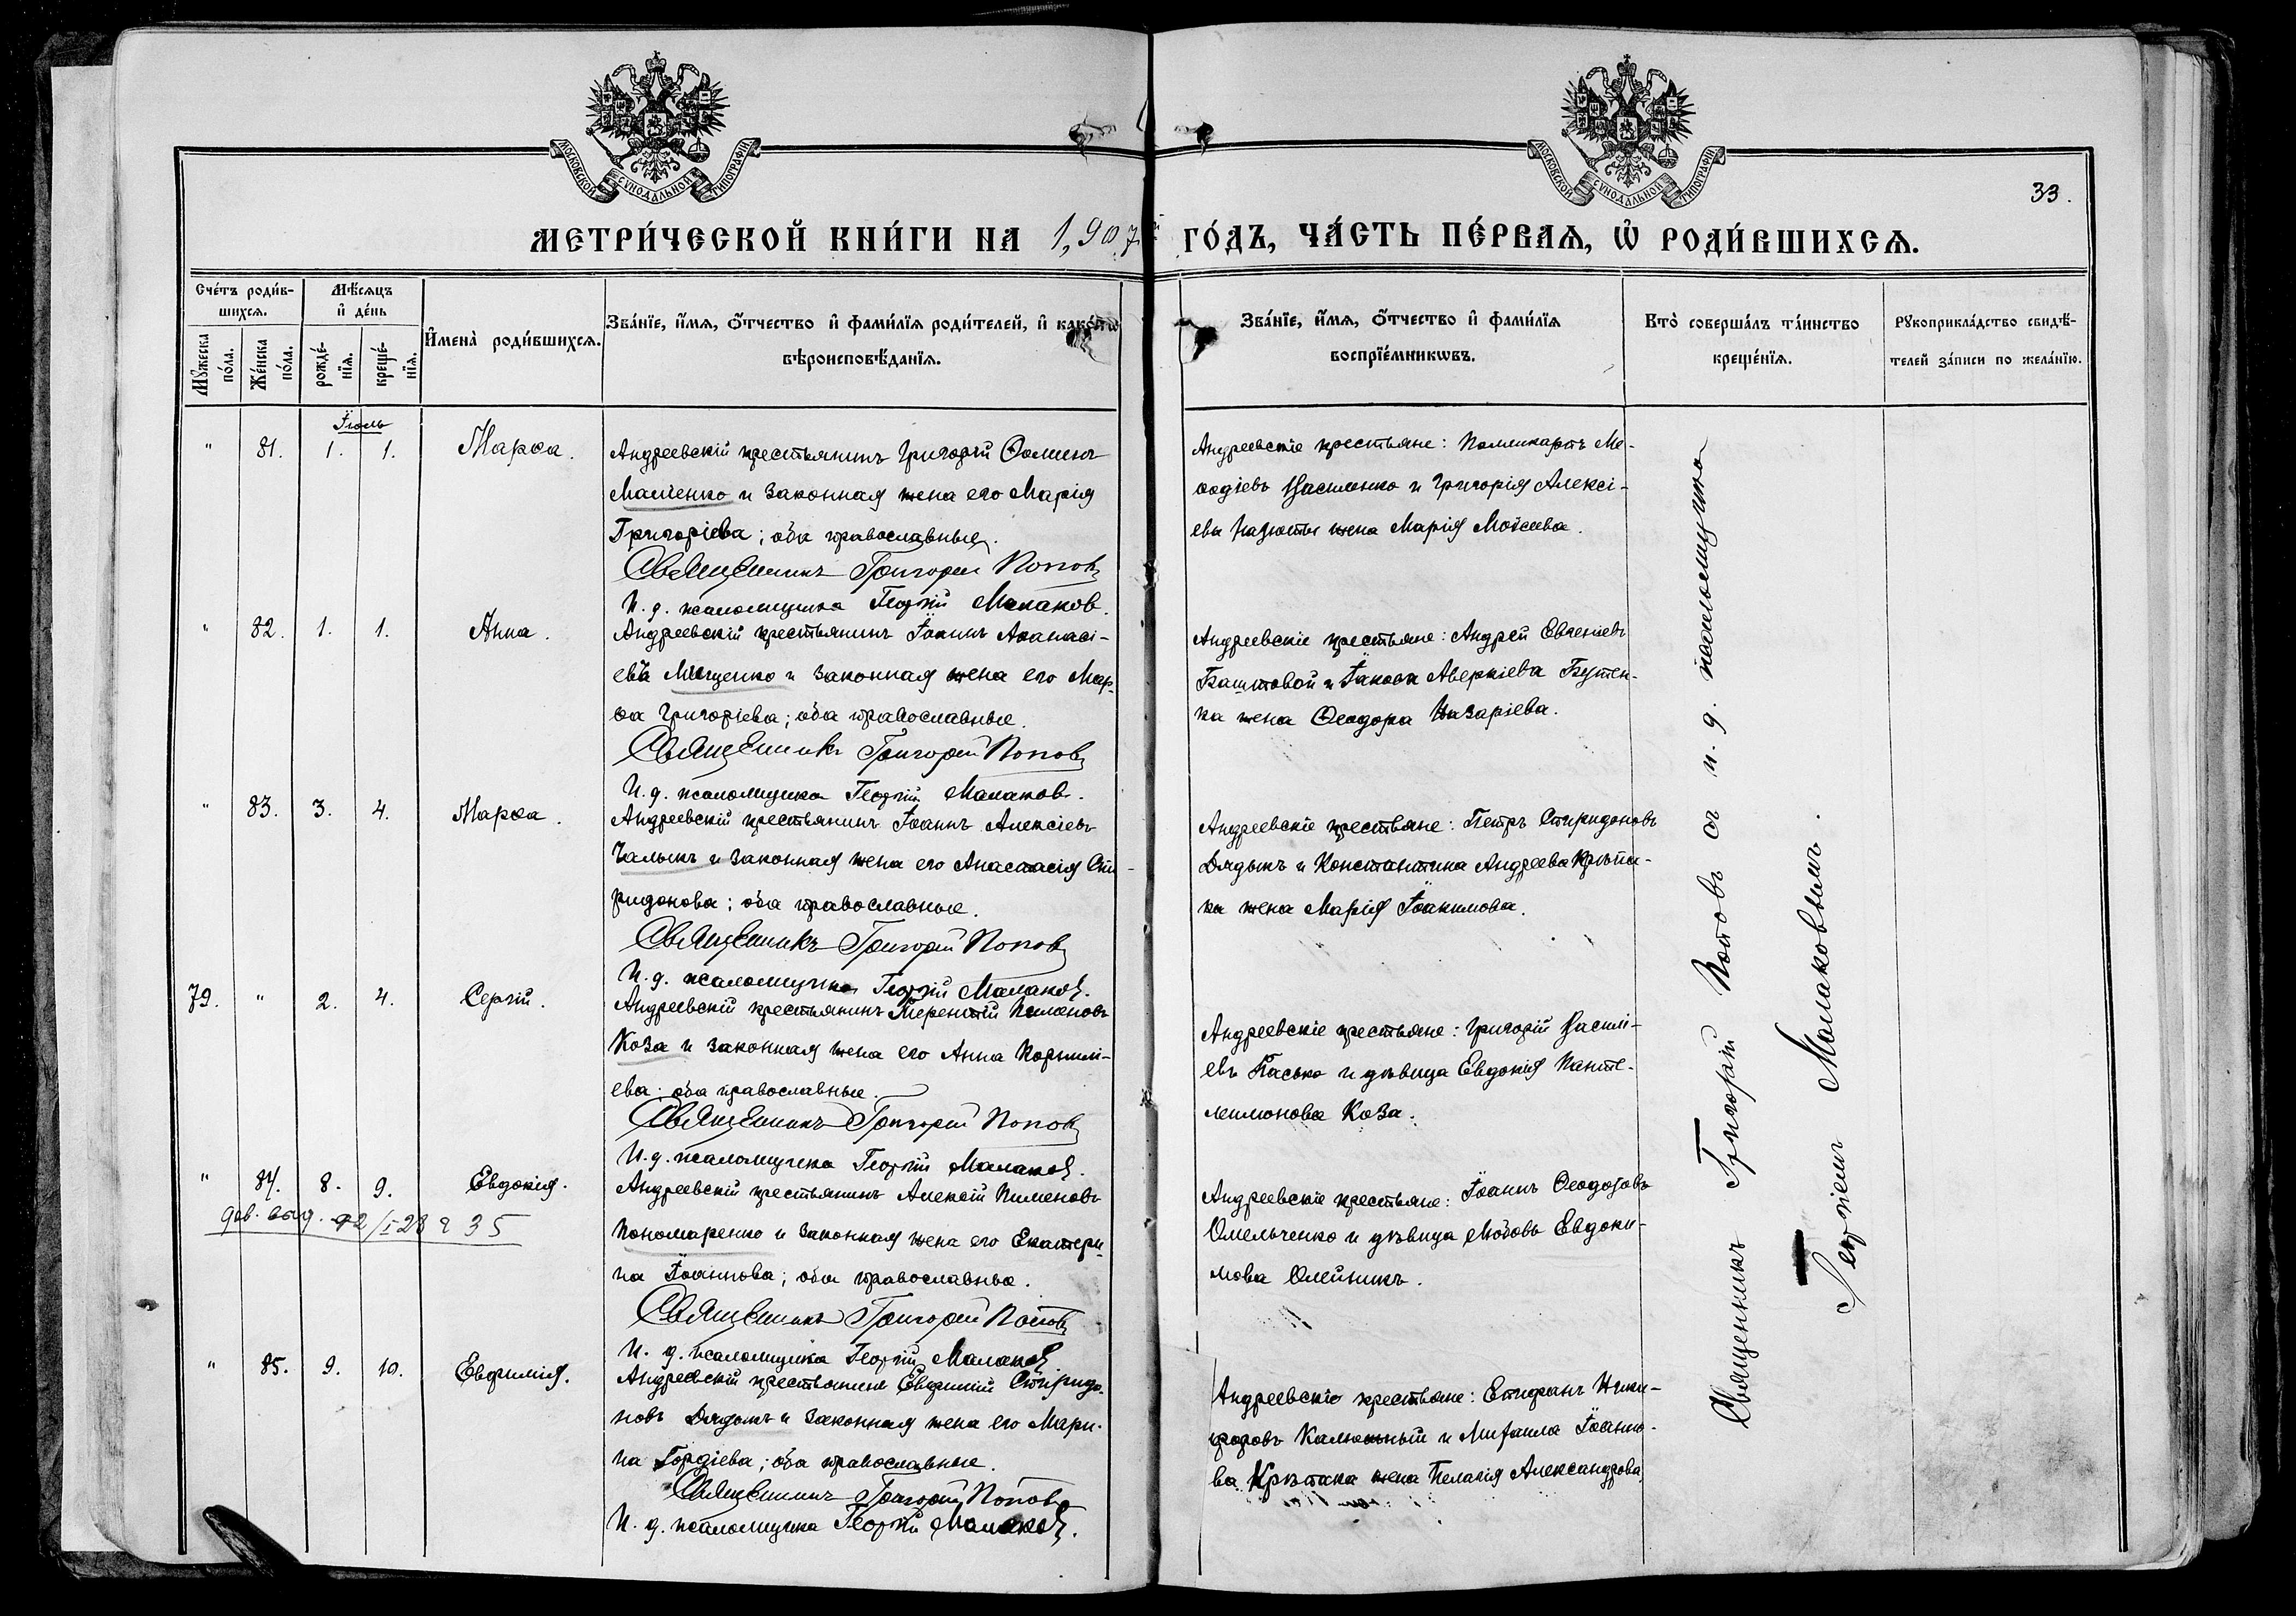 МОСКОВСКОЙ СѴНОДАЛЬНОЙ ТИПОГРАФІИ
МОСКОВСКОЙ СѴНОДАЛЬНОЙ ТИПОГРАФІИ
33.
МЕТРИ́ЧЕСКОЙ КНИ́ГИ НА 1907й ГО́ДЪ, ЧА́СТЬ ПЕ́РВАЯ, Ѡ РОДИ́ВШИХСЯ.
Сче́тъ роди́в-
шихся.
Мꙋжеска по́ла.
Же́нска по́ла.
Мѣ́сяцъ
и҆ де́нь
рожде́-
нїя.
креще́-
нїя.
И҆мена̀ роди́вшихся.
Зва́нїе, и҆́мя, ѻ҆́тчество и҆ фами́лїя роди́телей, и҆ како́гѡ
вѣроисповѣ́данїя.
Зва́нїе, и҆́мя, ѻ҆́тчество и҆ фами́лїя
воспрїе́мникѡвъ.
Кто̀ соверша́лъ та́инство
креще́нїя.
Рꙋкоприкла́дство свидѣ́-
телей за́писи по жела́нїю.
Іюль
" 81. 1. 1. Марѳа.
Андреевскій крестьянинъ Григорій Ѳоминъ
Маценко и законная жена его Марія
Григоріева; оба православные.
Священникъ Григорій Поповъ
И. д. псаломщика Георгій Малаковъ.
Андреевскіе крестьяне: Поликарпъ Ме-
ѳодіевъ Василенко и Григорія Алексі-
ева жена Марія Моѵсеева.
" 82. 1. 1. Анна.
Андреевскій крестьянинъ Іоаннъ Аѳанасі-
евъ Мищенко и законная жена его Мар-
ѳа Григоріева; оба православные.
Священникъ Григорій Поповъ
И. д. псаломщика Георгій Малаковъ.
Андреевскіе крестьяне: Андрей Евгеніевъ
Баштовой и Іакова Аверкіева Бутен-
ка жена Ѳеодора Назаріева.
" 83. 3. 4. Марѳа.
Андреевскій крестьянинъ Іоаннъ Алексіевъ
Чалыкъ и законная жена его Анастасія Спи-
ридонова; оба православные.
Священникъ Григорій Поповъ
И. д. псаломщика Георгій Малаковъ.
Андреевскіе крестьяне: Петръ Спиридоновъ
Дядыкъ и Константина Андреева Крѣпа-
ка жена Марія Іоакимова.
79. " 2. 4. Сергій.
Андреевскій крестьянинъ Терентій Пименовъ
Коза и законная жена его Анна Корнилі-
ева; оба православные.
Священникъ Григорій Поповъ
И. д. псаломщика Георгій Малаковъ.
Андреевскіе крестьяне: Григорій Василі-
евъ Пасько и дѣвица Евдокія Панте-
леимонова Коза.
" 84. 8. 9. Евдокія.
дов. выд. 22/I 28 г 35
Андреевскій крестьянинъ Алексій Пименовъ
Пономаренко и законная жена его Екатери-
на Іоаннова; оба православные.
Священникъ Григорій Поповъ
И. д. псаломщика Георгій Малаковъ
Андреевскіе крестьяне: Іоаннъ Ѳеодотовъ
Омельченко и дѣвица Любовь Евдоки-
мова Олейникъ.
" 85. 9. 10. Евфимія.
Андреевскій крестьянинъ Евфимій Спиридо-
новъ Дядыкъ и законная жена его Мари-
на Гордіева; оба православные.
Священникъ Григорій Поповъ
И. д. псаломщика Георгій Малаковъ.
Андреевскіе крестьяне: Епифанъ Ники-
форовъ Калюжный и Михаила Іоанно-
ва Крѣпака жена Пелагія Александрова.
Священникъ Григорій Поповъ съ и. д. псаломщика
Георгіемъ Малаковымъ.